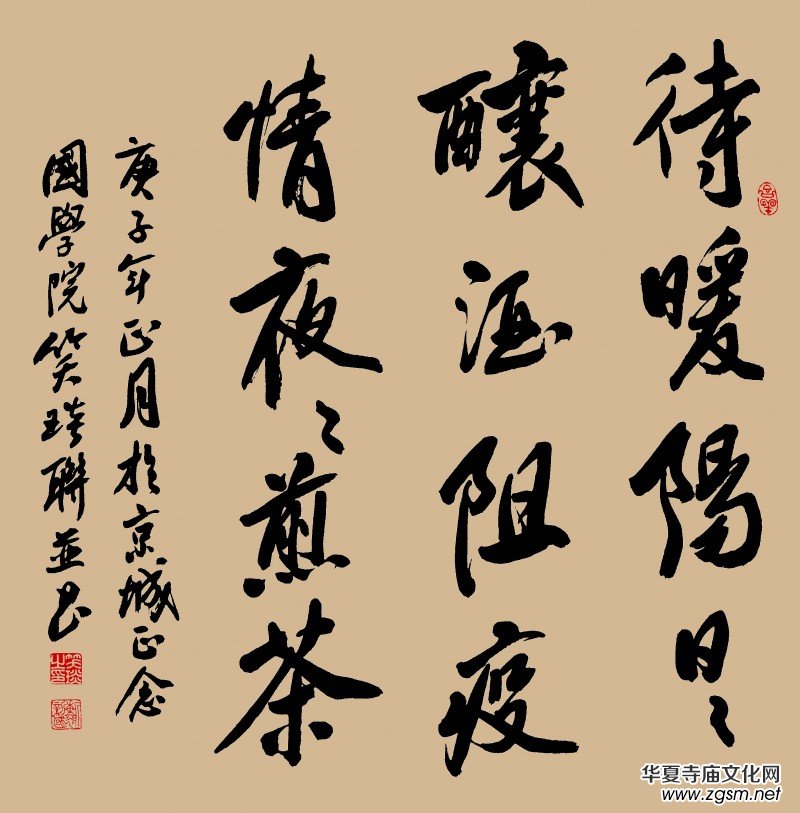 待暖陽日〻
釀酒阻疫
情夜〻煎茶
庚子年正月於京城正念
國學院笑琰聯並书
华夏寺庙文化网
www.zgsm.net